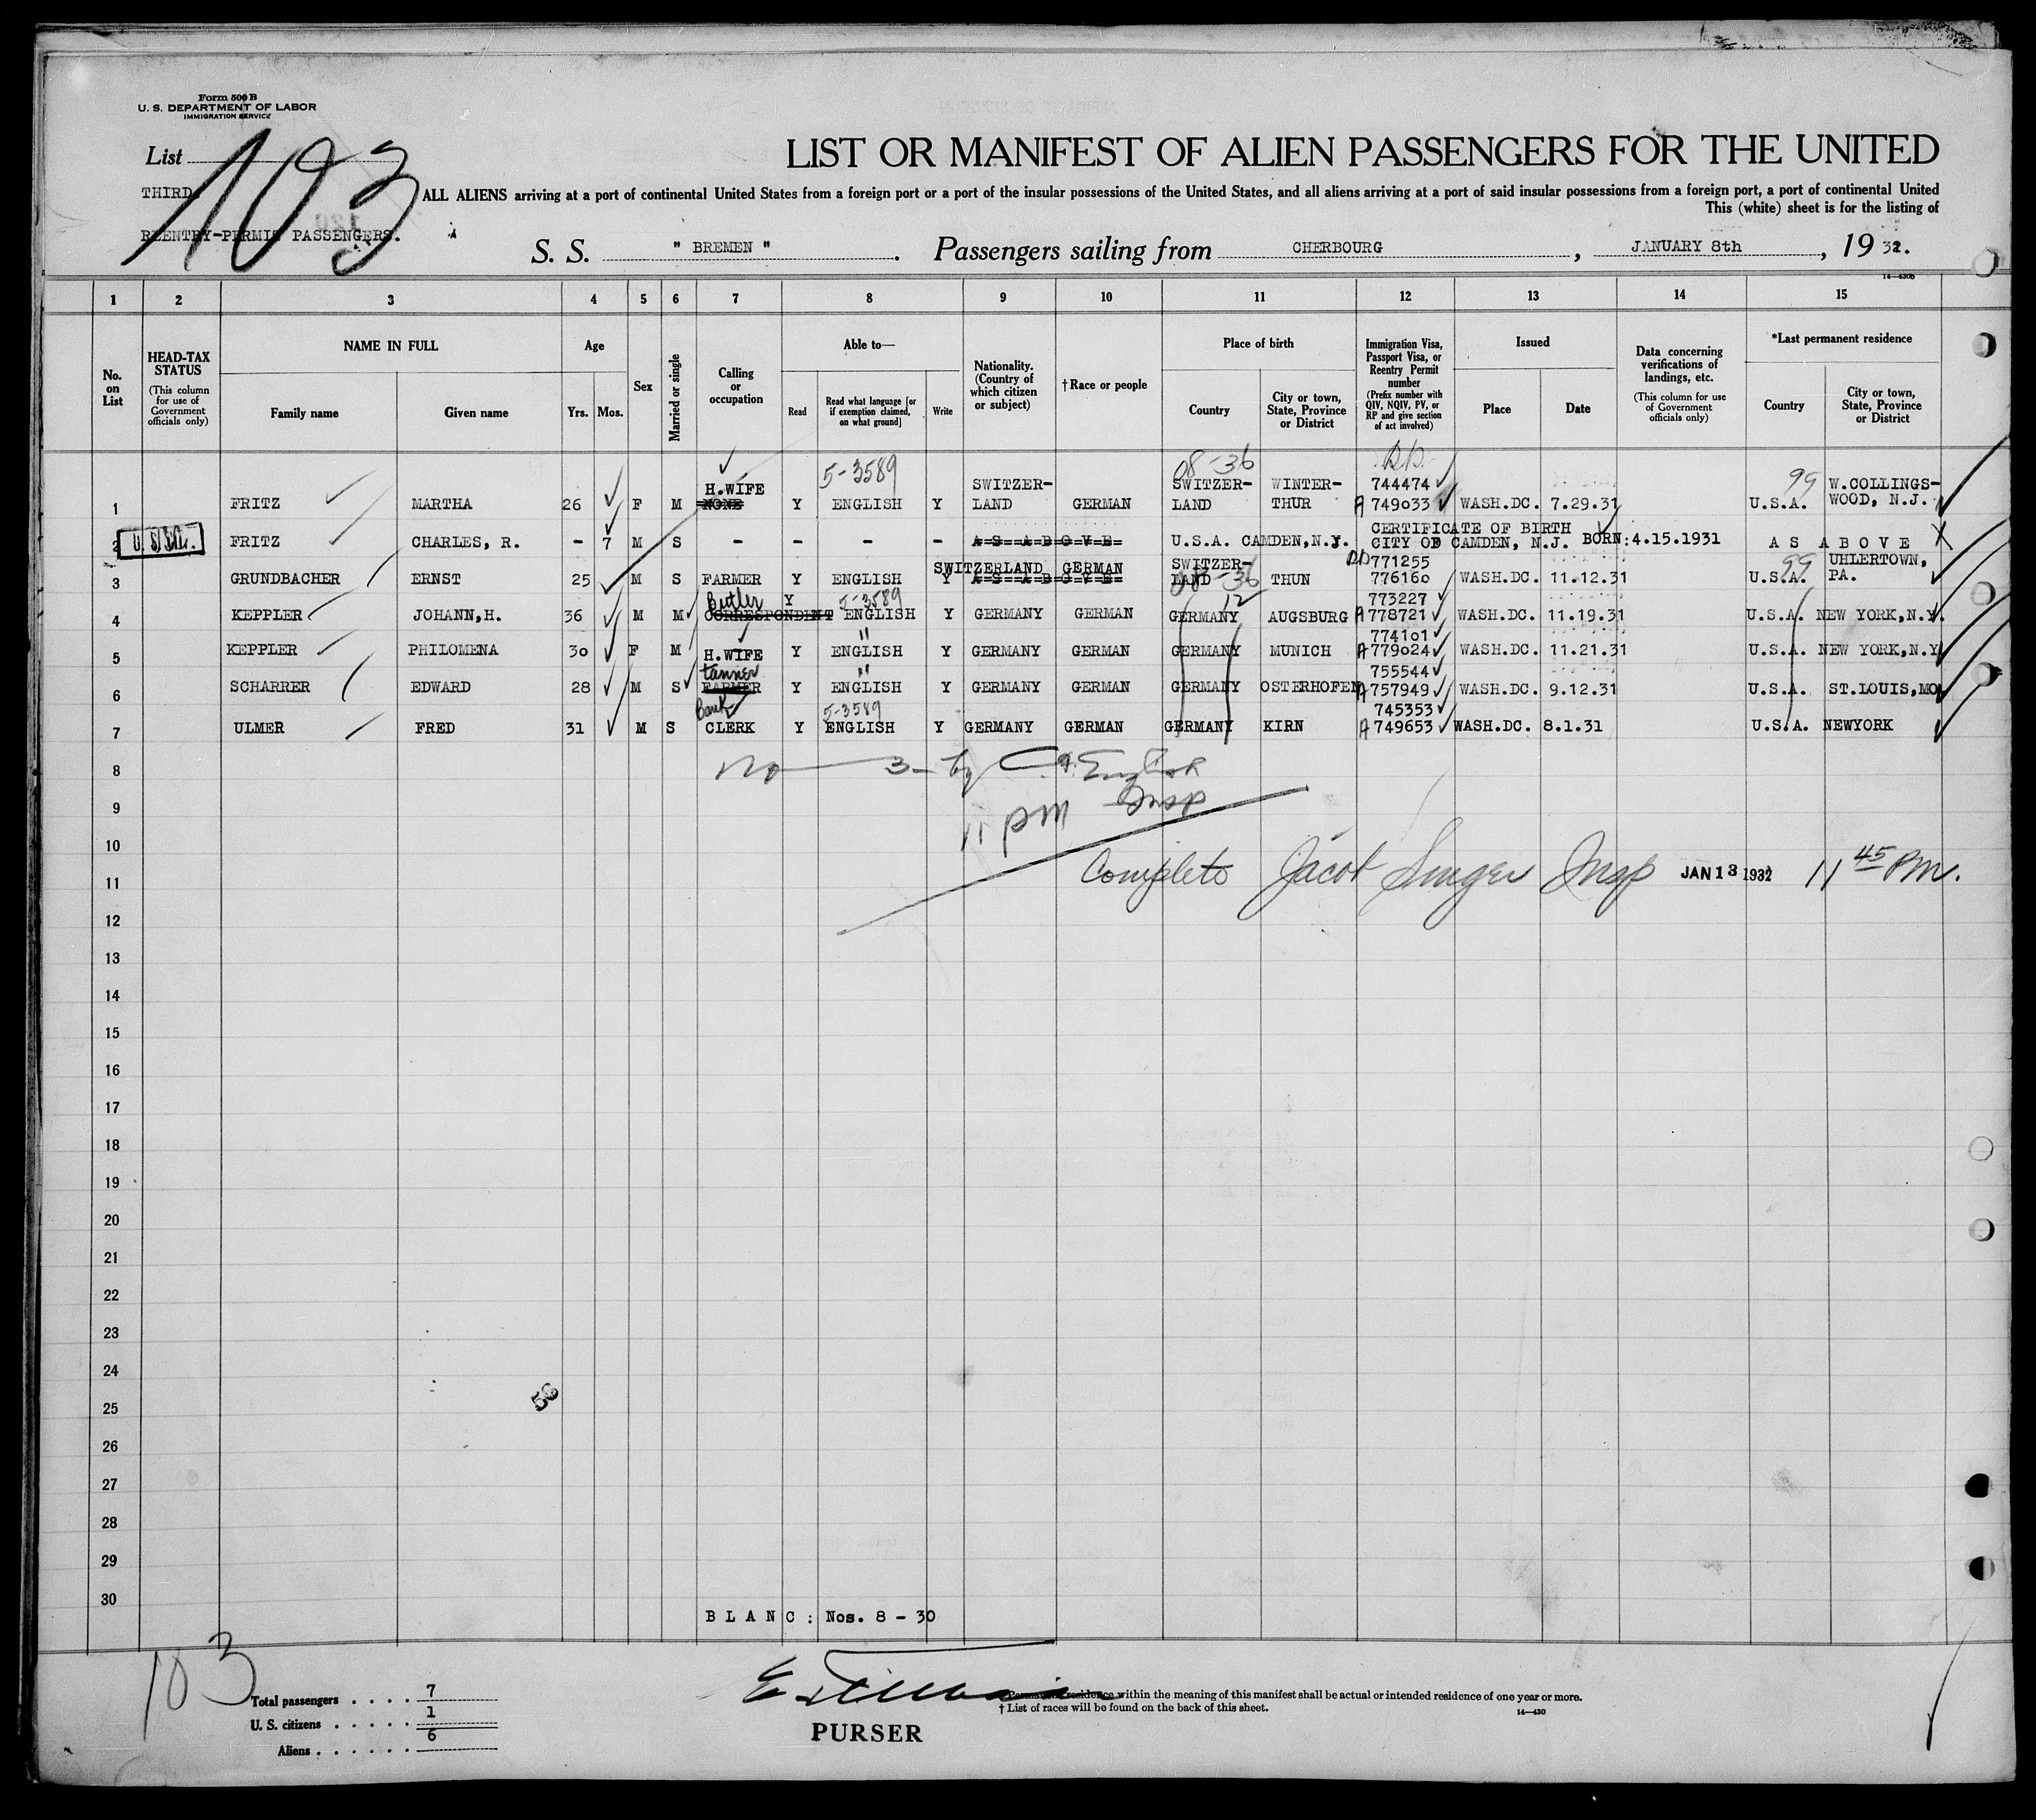 Form 500 B
U. S. DEPARTMENT OF LABOR
IMMIGRATION SERVICE
List 103
THIRD
REENTRY-PERMIT PASSENGERS.
LIST OR MANIFEST OF ALIEN PASSENGERS FOR THE UNITED
ALL ALIENS arriving at a port of continental United States from a foreign port or a port of the insular possessions of the United States, and all aliens arriving at a port of said insular possessions from a foreign port, a port of continental United
This (white) sheet is for the listing of
S. S. " BREMEN ". Passengers sailing from CHERBOURG, JANUARY 8th, 1932.
14—430b
1 2 3 4 5 6 7 8 9 10 11 12 13 14 15
No. on List
HEAD-TAX STATUS (This column for use of Government officials only)
NAME IN FULL
Family name
Given name
Age
Yrs. Mos.
Sex
Married or single
Calling or occupation
Able to—
Read
Read what language [or if exemption claimed, on what ground]
Write
Nationality. (Country of which citizen or subject)
†Race or people
Place of birth
Country
City or town, State, Province or District
Immigration Visa, Passport Visa, or Reentry Permit number (Prefix number with QIV, NQIV, PV, or RP and give section of act involved)
Issued
Place
Date
Data concerning verifications of landings, etc. (This column for use of Government officials only)
*Last permanent residence
Country
City or town, State, Province or District
5-3589 08-36 99
1 FRITZ MARTHA 26 F M H.WIFE NONE Y ENGLISH Y SWITZER-LAND GERMAN SWITZER-LAND WINTER-THUR 744474 A 749033 WASH.DC. 7.29.31 U.S.A. W.COLLINGS-WOOD, N.J.
2 FRITZ CHARLES, R. - 7 M S - - - - AS ABOVE U.S.A. CAMDEN,N.J. CERTIFICATE OF BIRTH CITY OF CAMDEN, N.J. BORN:4.15.1931 AS ABOVE
3 GRUNDBACHER ERNST 25 M S FARMER Y ENGLISH Y SWITZERLAND GERMAN AS ABOVE SWITZER-LAND 08-36 THUN 771255 776160 WASH.DC. 11.12.31 U.S.A. 99 UHLERTOWN, PA.
4 KEPPLER JOHANN,H. 36 M M Butler CORRESPONDENT Y 5-3589 ENGLISH Y GERMANY GERMAN GERMANY 12 AUGSBURG 773227 A 778721 WASH.DC. 11.19.31 U.S.A. NEW YORK,N.Y.
5 KEPPLER PHILOMENA 30 F M H.WIFE Y " ENGLISH Y GERMANY GERMAN GERMANY MUNICH 774101 A 779024 WASH.DC. 11.21.31 U.S.A. NEW YORK,N.Y
6 SCHARRER EDWARD 28 M S tanner FARMER Y " ENGLISH Y GERMANY GERMAN GERMANY OSTERHOFEN 755544 A 757949 WASH.DC. 9.12.31 U.S.A. ST.LOUIS,MO
7 ULMER FRED 31 M S Bank CLERK Y 5-3589 ENGLISH Y GERMANY GERMAN GERMANY KIRN 745353 A 749653 WASH.DC. 8.1.31 U.S.A. NEWYORK
8 No 3 - by English
9 11 pm Insp
10
11 Complete Jacob Singer Insp JAN 13 1932 11 45 PM.
12
13
14
15
16
17
18
19
20
21
22
23
24
25
26
27
28
29
30
BLANC: Nos. 8 - 30
103
Total passengers . . . . 7
U. S. citizens . . . . . 1
Aliens . . . . . . 6
PURSER
*Permanent residence within the meaning of this manifest shall be actual or intended residence of one year or more.
† List of races will be found on the back of this sheet.
14—430